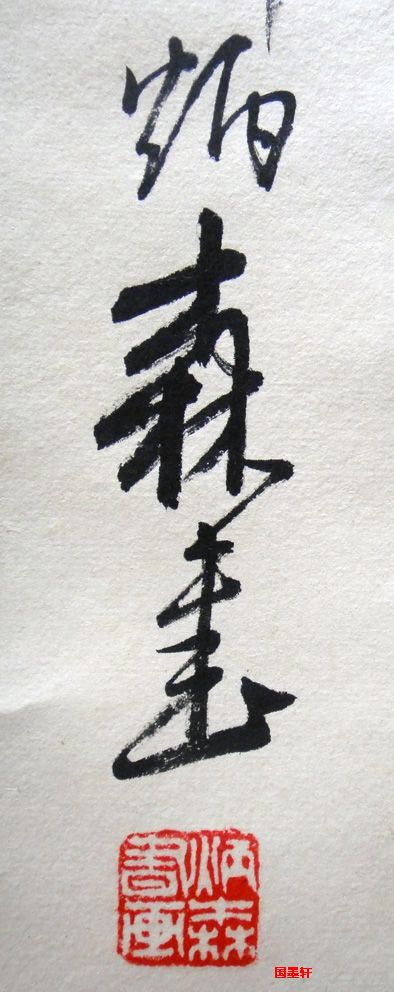 炳森畫
炳森
書畫
国墨轩